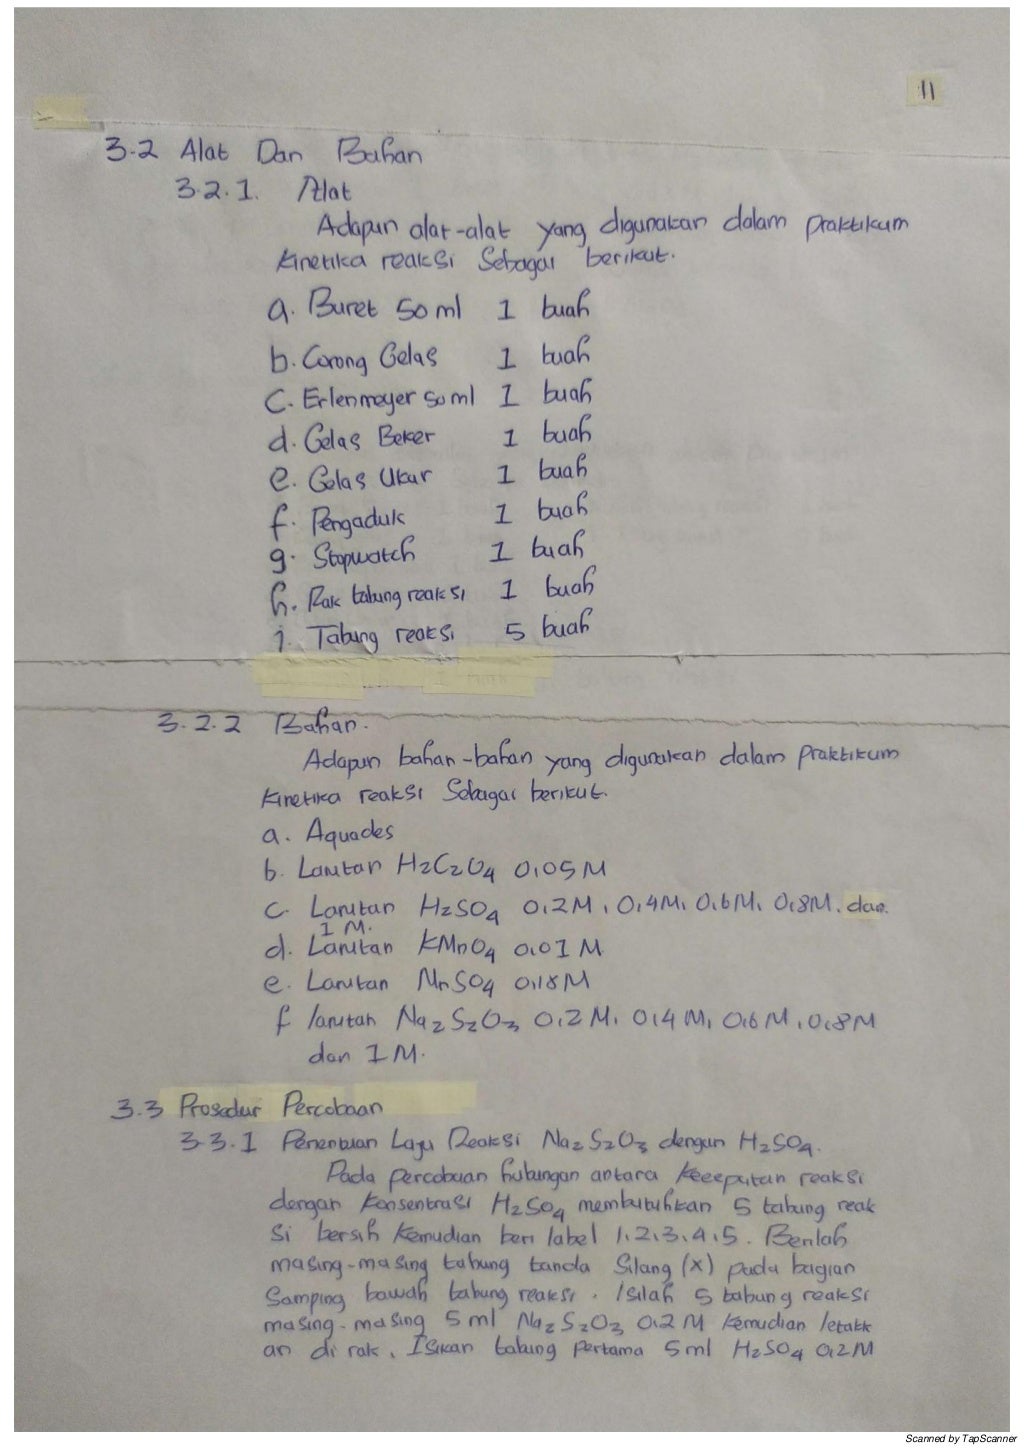 11
3.2 Alat Dan Bahan
3.2.1. Alat
Adapun alat-alat yang digunakan dalam praktikum
kinetika reaksi Sebagai berikut.
a. Buret 50 ml 1 buah
b. Corong Gelas 1 buah
C. Erlenmeyer 50 ml 1 buah
d. Gelas Beker 1 buah
e. Gelas Ukur 1 buah
f. Pengaduk 1 buah
g. Stopwatch 1 buah
h. Rak tabung reaksi 1 buah
i. Tabung reaksi 5 buah
3.2.2 Bahan.
Adapun bahan-bahan yang digunakan dalam praktikum
kinetika reaksi Sebagai berikut.
a. Aquades
b. Larutan H2C2O4 0,05 M
c. Larutan H2SO4 0,2M, 0,4M, 0,6M, 0,8M, dan
1 M.
d. Larutan KMnO4 0,01 M
e. Larutan MnSO4 0,18M
f larutan Na2S2O3 0,2 M, 0,4 M, 0,6 M, 0,8M
dan 1 M.
3.3 Prosedur Percobaan
3.3.1 Penentuan Laju Reaksi Na2S2O3 dengan H2SO4.
Pada percobaan hubungan antara kecepatan reaksi
dengan konsentrasi H2SO4 membutuhkan 5 tabung reak
si bersih kemudian beri label 1,2,3,4,5. Berilah
masing-masing tabung tanda Silang (x) pada bagian
Samping bawah tabung reaksi. Isilah 5 tabung reaksi
masing-masing 5 ml Na2S2O3 0,2 M kemudian letakk
an di rak, Isikan tabung pertama 5 ml H2SO4 0,2M
Scanned by TapScanner